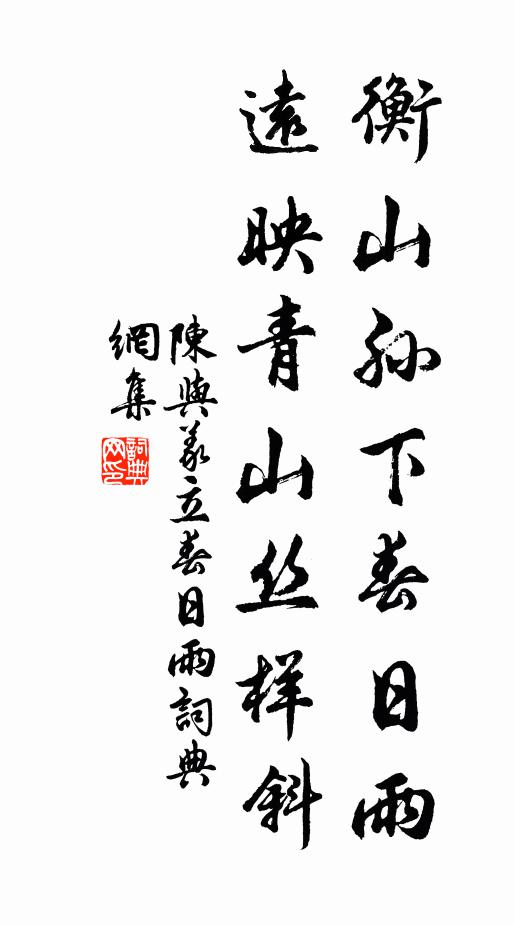 衡山縣下春日雨
遠映青山丝样斜
陳與義立春日雨詞典
網集
詞典
网印